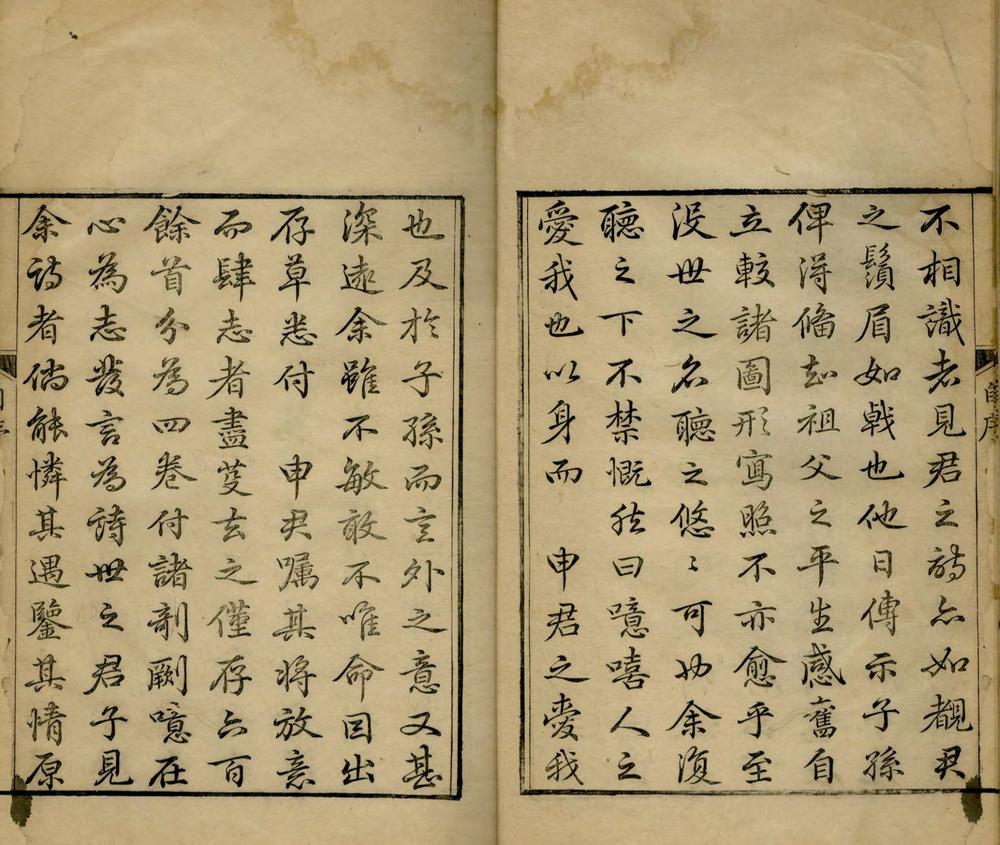 不相識者見君之詩亦如覩君
之鬚眉如戟也他日傳示子孫
俾得備知祖父之平生感奮自
立較諸圖形寫照不亦愈乎至
没世之名聽之悠〻可也余復
聽之下不禁慨然曰噫嘻人之
愛我也以身而　申君之愛我
也及於子孫而言外之意又甚
深遠余雖不敏敢不唯命因出
存草悉付　申君囑其將放意
而肆志者盡芟去之僅存六百
餘首分為四卷付諸剞劂噫在
心為志發言為詩世之君子見
余詩者倘能憐其遇鑒其情原
自序